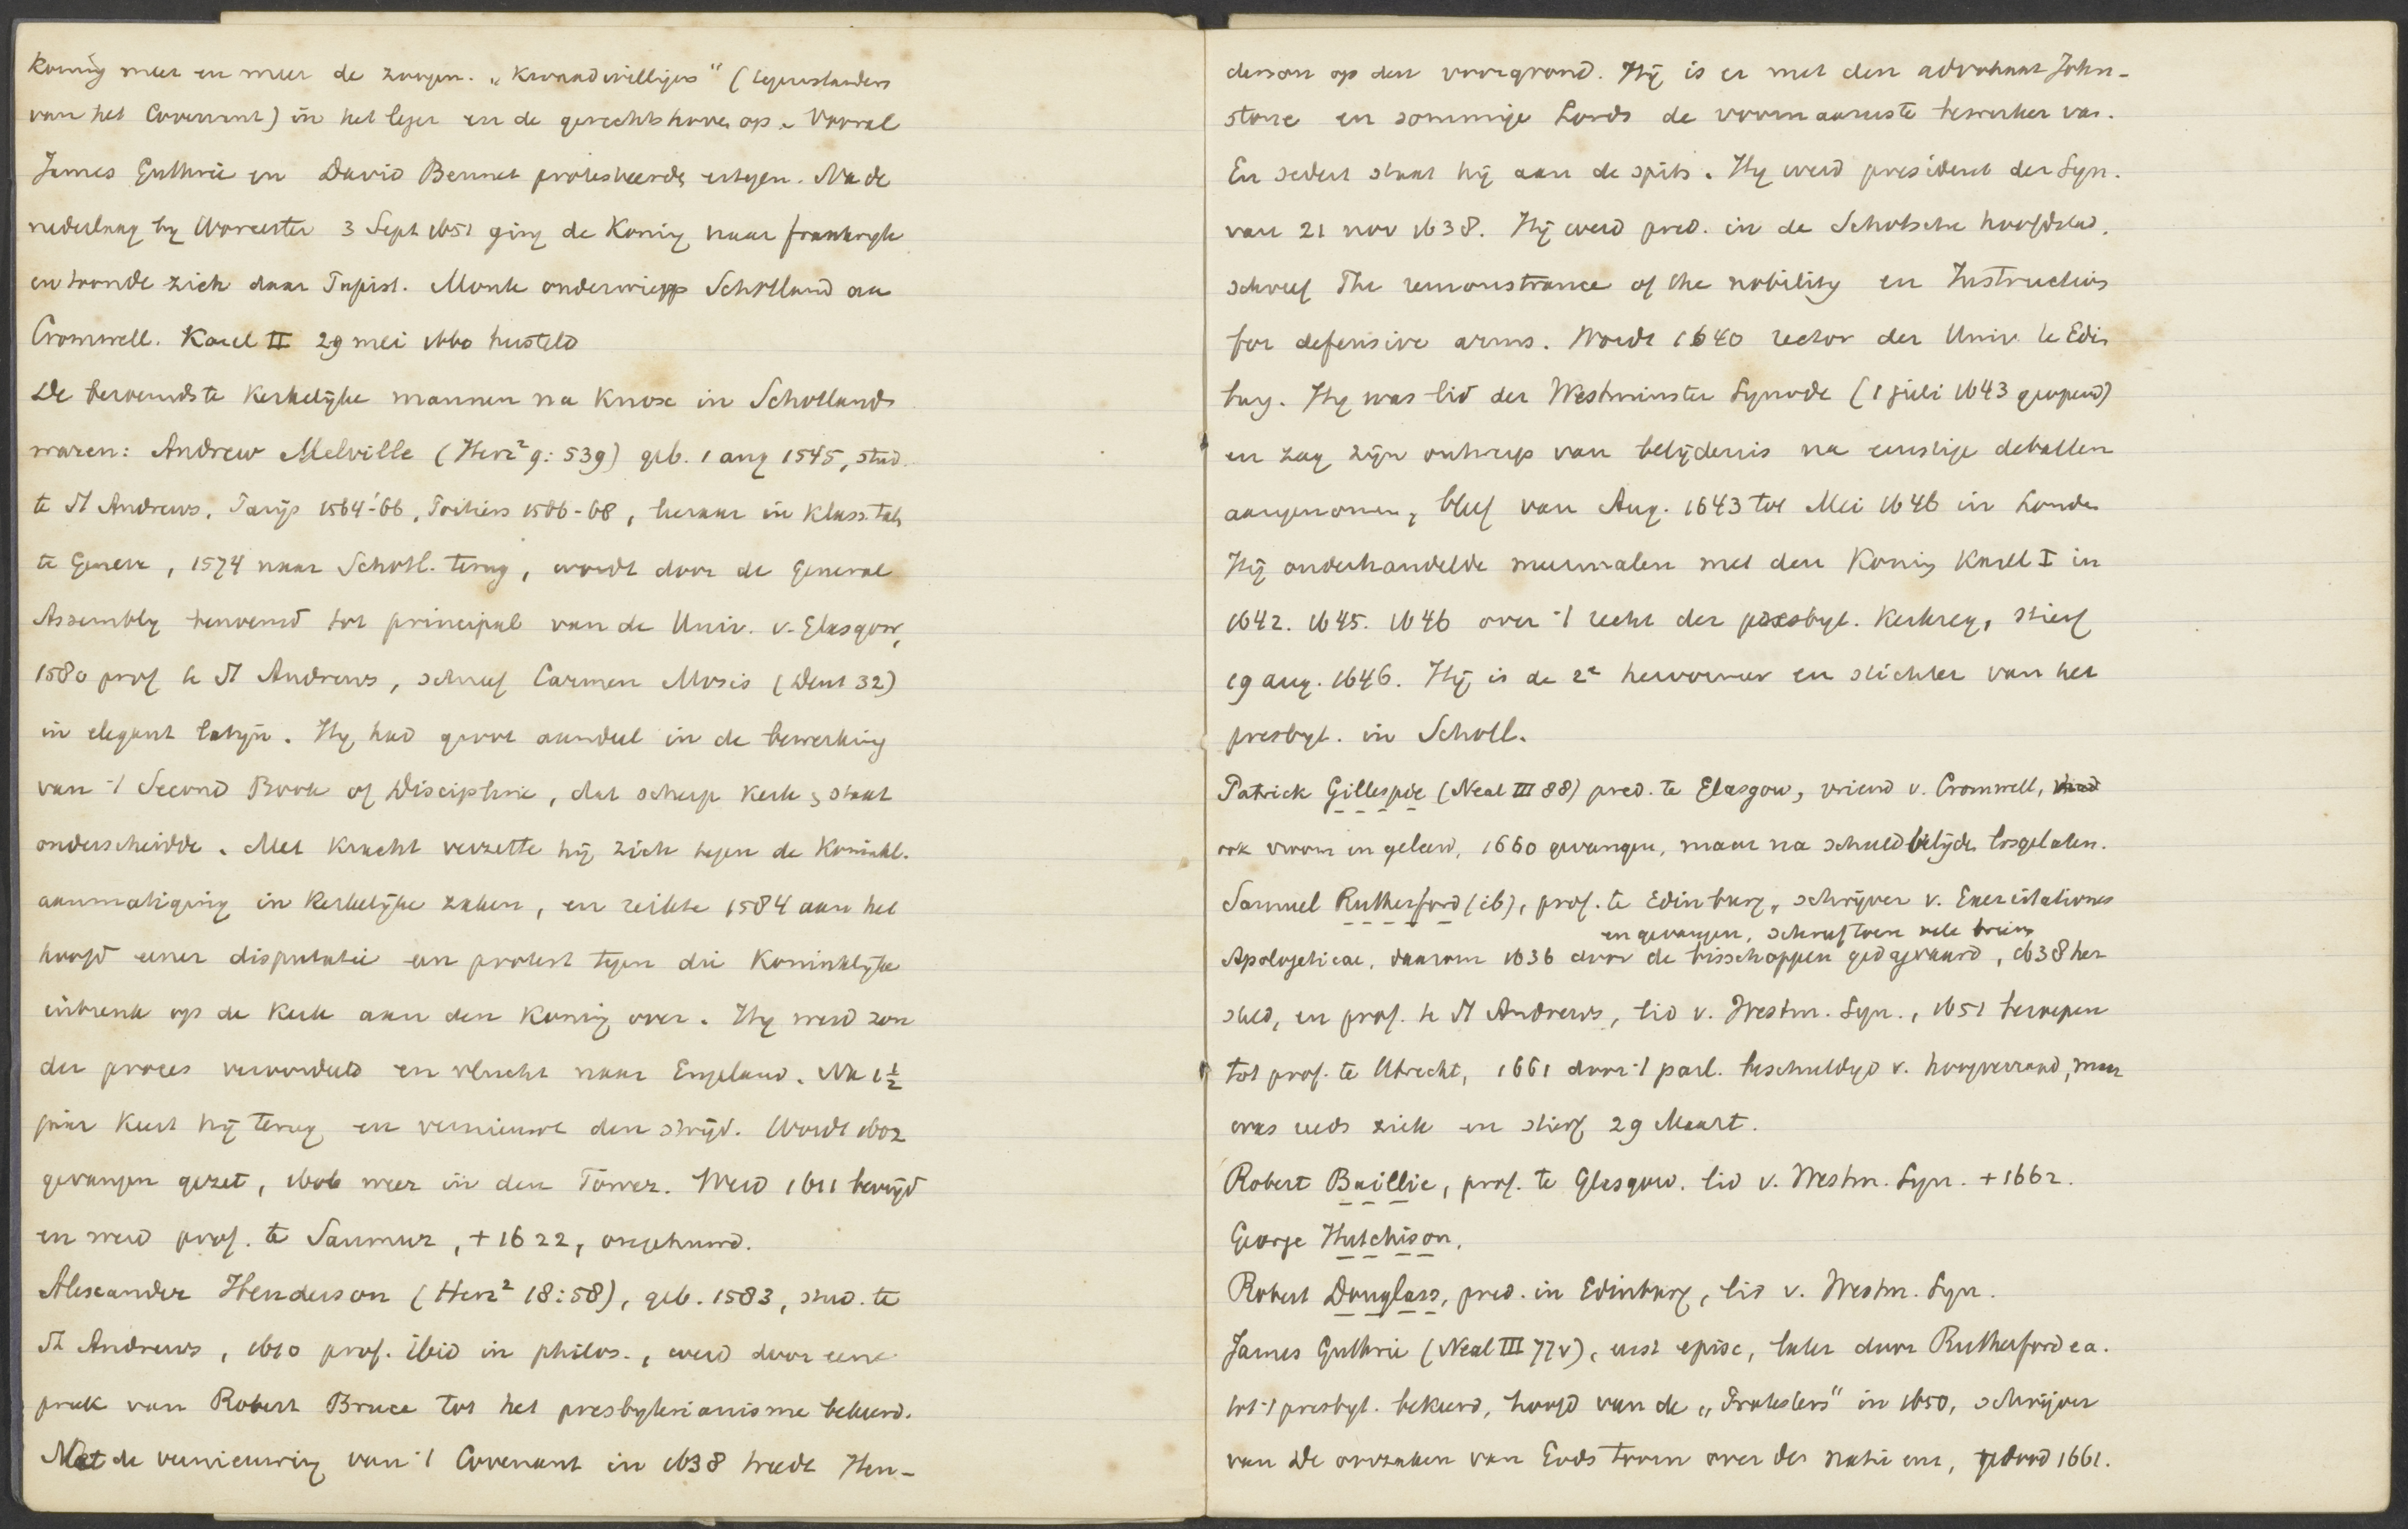 koning meer en meer de zoogen. „kwaadwilligers" (tegenstanders
van het Covenant) in het leger en de gerechtshoven op. Vooral
James Guthrie en David Bennet protesteerde ertegen. Na de
nederlaag by Worcester 3 Sept 1651 ging de Koning naar frankryk
en toonde zich daar Papist. Monk onderwierp Schotland aan
Cromwell. Karel II 29 mei 1660 hersteld
De beroemdste kerkelyke mannen na Knox in Schotland
waren: Andrew Melville (Herz² 9:539) geb. 1 aug 1545, stud.
te St Andrews, Parijs 1564-'66, Poitiers 1566-68, leeraar in klass. tal.
te Geneve, 1574 naar Schotl. terug, wordt door de General
Assembly benoemd tot principal van de Univ. v. Glasgow,
1580 prof te St Andrews, schreef Carmen Mosis (Deut 32)
in elegant latyn. Hy had groot aandeel in de bewerking
van 't Second Book of Discipline, dat scherp kerk & staat
onderscheidde. Met kracht verzette hij zich tegen de Koninkl.
aanmatiging in kerkelijke zaken, en reikte 1584 aan het
hoofd eener disputatie een protest tegen die Koninklijke
inbreuk op de kerk aan den koning over. Hy werd zon
der proces veroordeeld en vlucht naar Engeland. Na 1½
jaar keert hij terug en vernieuwt den strijd. Wordt 1602
gevangen gezet, 1606 weer in den Tower. Werd 1611 bevrijd
en werd prof. te Saumur, + 1622, ongehuwd.
Alexander Henderson (Herz² 18:58), geb. 1583, stud. te
St Andrews, 1610 prof. ibid in philos., werd door eene
preek van Robert Bruce tot het presbyterianisme bekeerd.
Met de vernieuwing van 't Covenant in 1638 treedt Hen-
derson op den voorgrond. Hij is er met den advokaat John-
stone en sommige Lords de voornaamste bewerker van.
En sedert staat hij aan de spits. Hy werd president der Syn.
van 21 nov 1638. Hij werd pred. in de Schotsche hoofdstad.
schreef The remonstrance of the nobility en Instructions
for defensive arms. Wordt 1640 rector der Univ. te Edin
burg. Hy was lid der Westminster Synode (1 juli 1643 geopend)
en zag zijn ontwerp van belijdenis na ernstige debatten
aangenomen, bleef van Aug. 1643 tot Mei 1646 in Londen
Hij onderhandelde meermalen met den Koning Karel I in
1642. 1645. 1646 over 't recht der presbyt. kerkreg, stierf
19 aug. 1646. Hij is de 2e hervormer en stichter van het
presbyt. in Schotl.
Patrick Gillespie (Neal III 88) pred. te Glasgow, vriend v. Cromwell,
ook vroom en geleerd, 1660 gevangen, maar na schuldbelijdn losgelaten.
Samuel Rutherford (ib), prof. te Edinburg, schrijver v. Exercitationes
en gevangen, schreef toen vele brieven
Apologeticae, daarom 1636 door de bisschoppen gedagvaard, 1638 her
steld, en prof. te St Andrews, lid v. Westm. Syn., 1651 beroepen
tot prof. te Utrecht, 1661 door 't parl. beschuldigd v. hoogverraad, maar
was reeds ziek en stierf 29 Maart.
Robert Baillie, prof. te Glasgow. lid v. Westm. Syn. + 1662.
George Hutchison,
Robert Douglass, pred. in Edinburg, lid v. Westm. Syn.
James Guthrie (Neal III 77v), eerst episc, later door Rutherford ea.
tot 't presbyt. bekeerd, hoofd van de „Protesters" in 1650, schrijver
van De oorzaken van Gods toorn over de natie enz, gedood 1661.